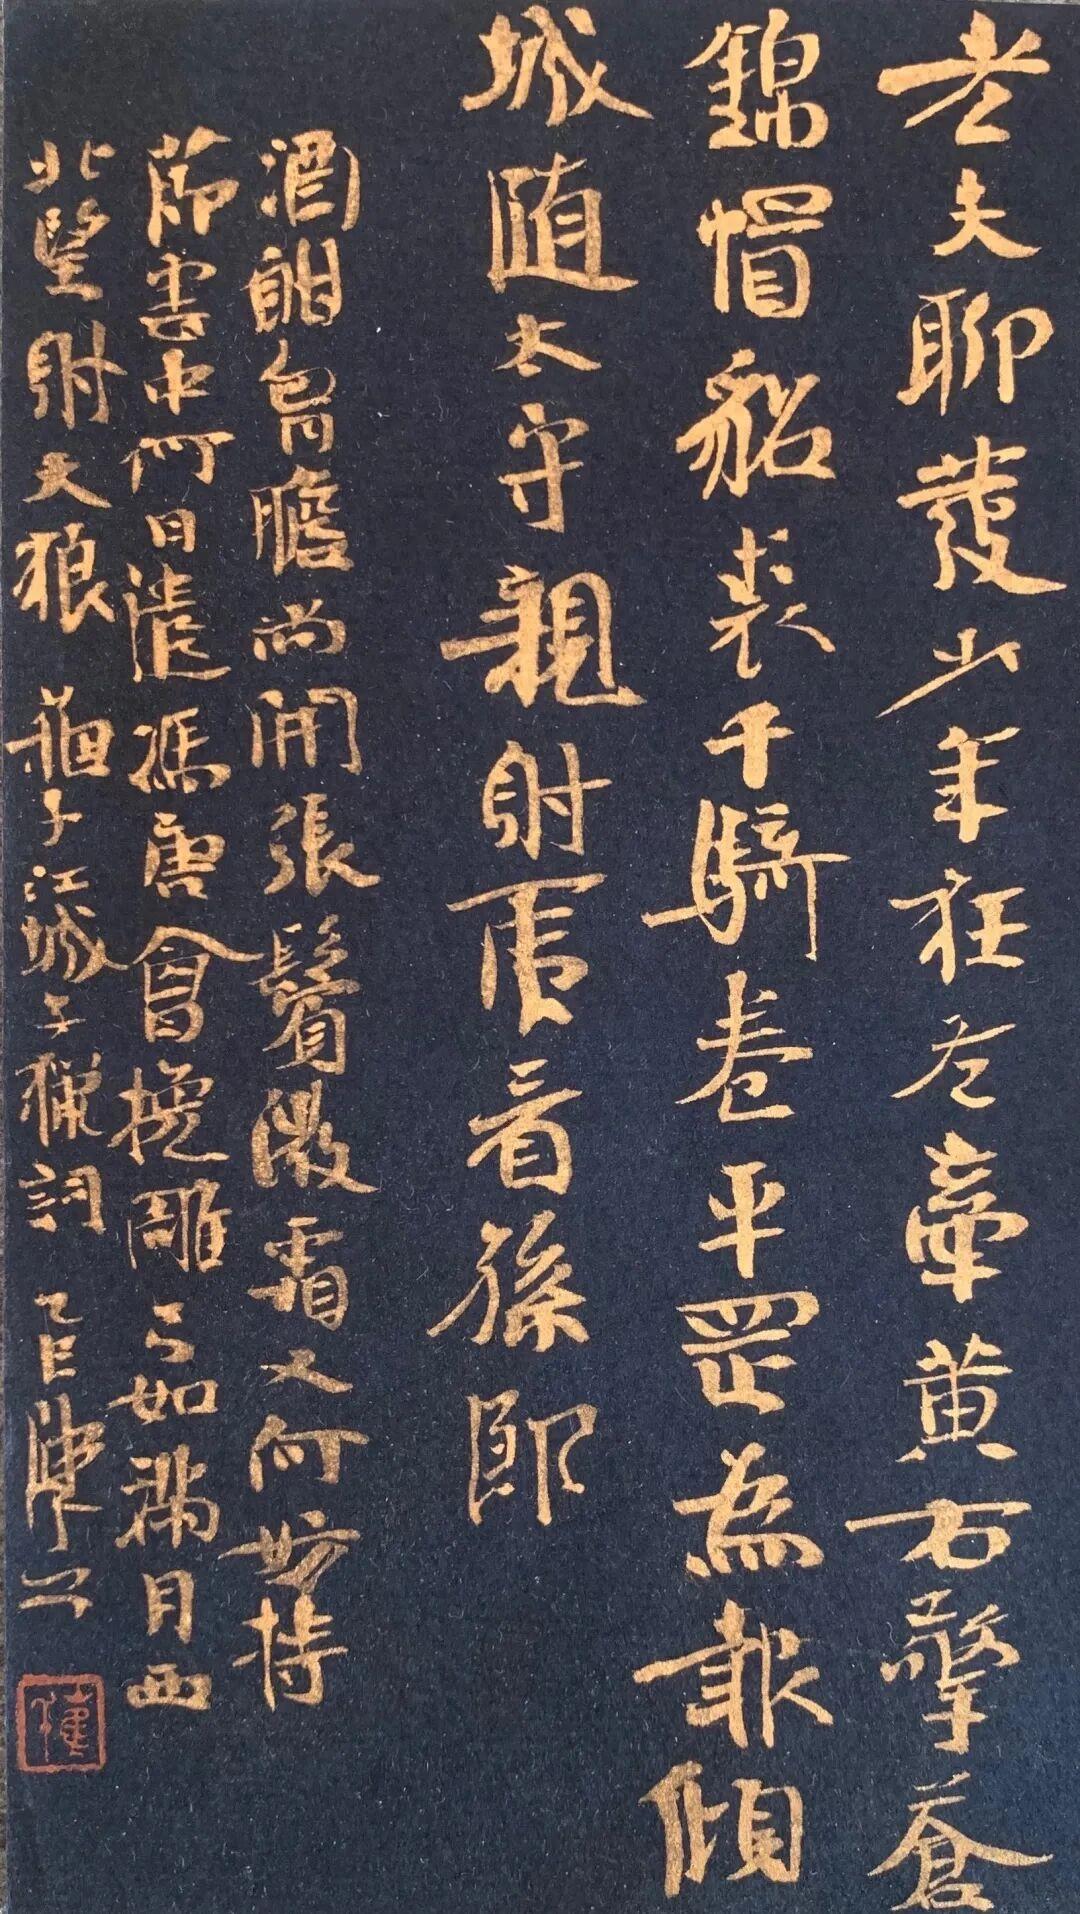 老夫聊發少年狂左牽黄右擎蒼
錦帽貂裘千騎卷平罡為報傾
城随太守親射虎看孫郎
酒酣胸膽尚開張鬢微霜又何妨持
節雲中何日遣馮唐會挽雕弓如滿月西
北望射天狼 蘇子江城子獵詞 乙巳陳